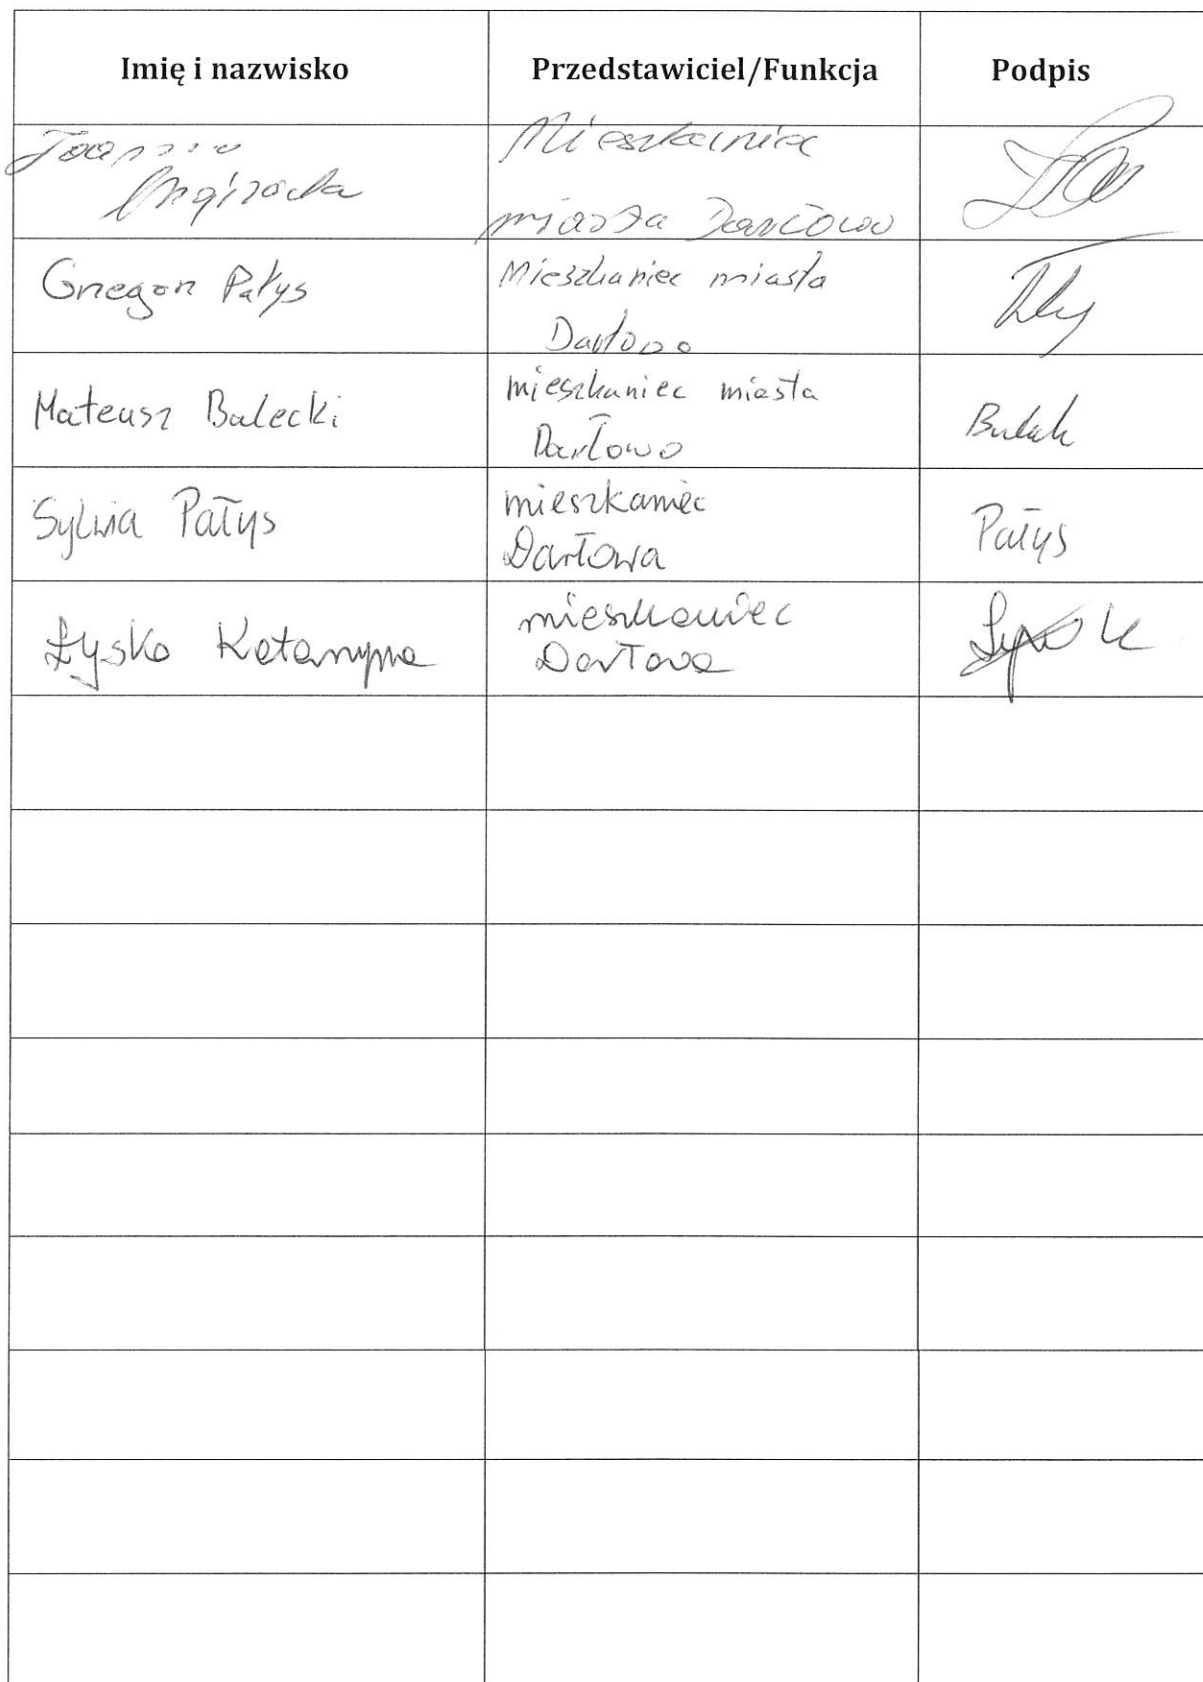 Imię i nazwisko Przedstawiciel/Funkcja Podpis
Joanna
Mieszkaniec
miasta Darłowo
Grzegorz Pałys
Mieszkaniec miasta
Darłowo
Mateusz Balecki
mieszkaniec miasta
Darłowo
Sylwia Pałys
mieszkaniec
Darłowa
Pałys
Łysko Katarzyna
mieszkaniec
Darłowa